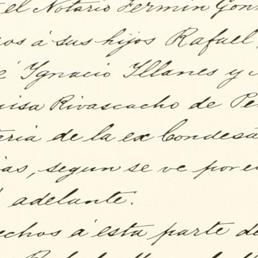 el Notario Fermin Gon
os á sus hijos Rafael,
é Ignacio Illanes y
uisa Rivascacho de Pe
teria de la ex Condesa
ias, segun se ve por e
adelante.
echos á esta parte de